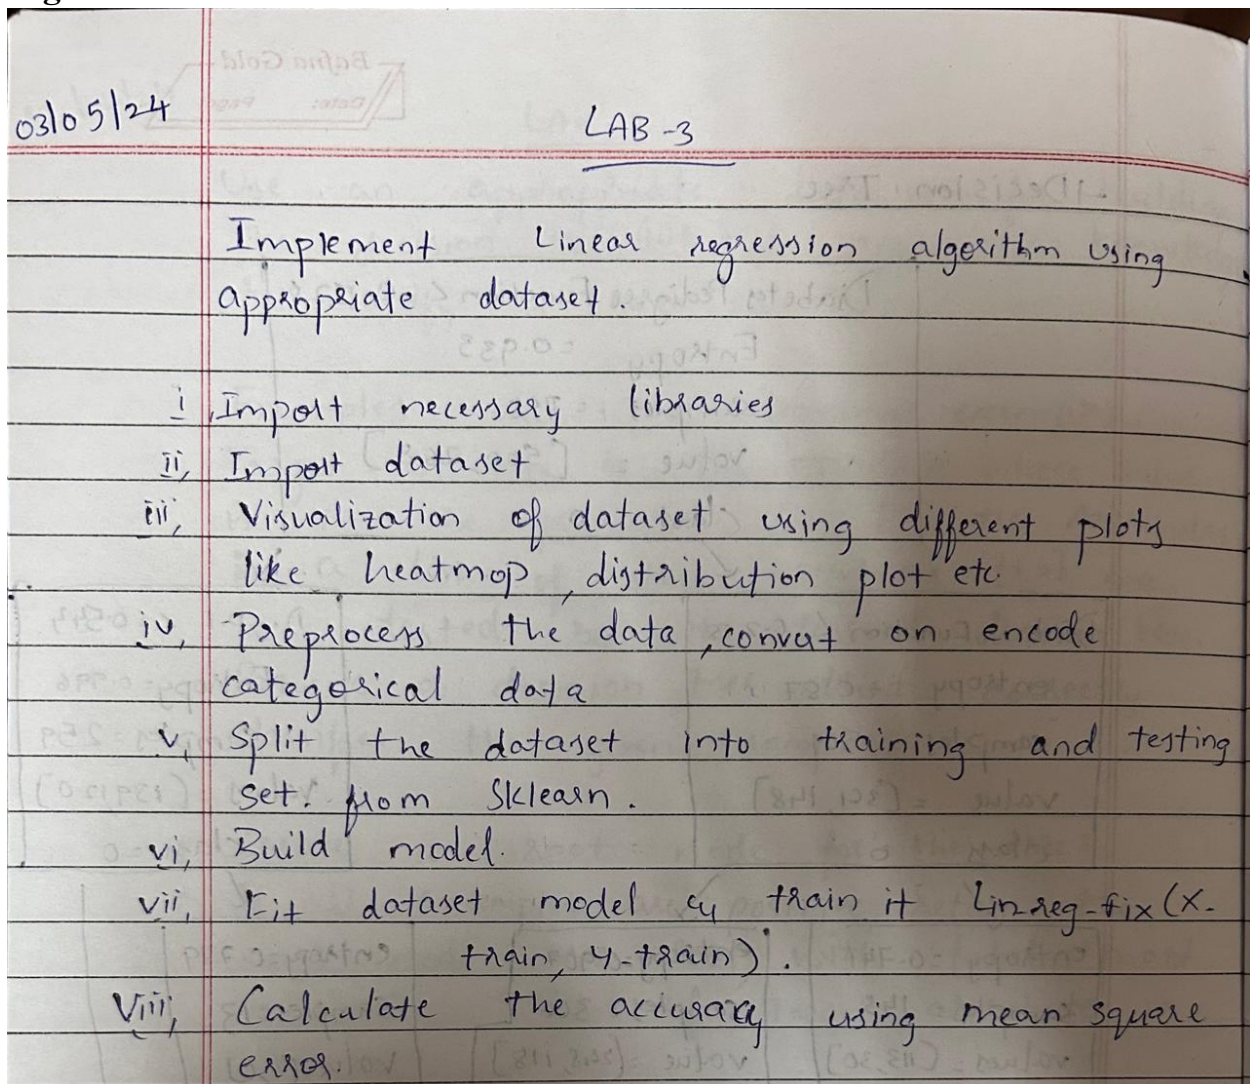 03/05/24
LAB-3
Implement Linear regression algorithm using
appropriate dataset.
i, Import necessary libraries
ii, Import dataset
iii, Visualization of dataset using different plots
like heatmop, distribution plot etc
iv, Preprocess the data, convut on encode
categorical data
v, Split the dataset into training and testing
set. from Sklearn.
vi, Build model.
vii, Fit dataset model & train it Lin-reg-fix (X-
train, y-train).
Viii, Calculate the accuracy using mean square
error.